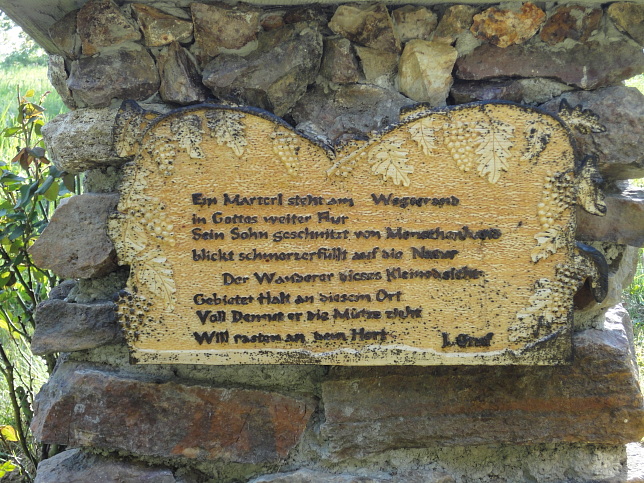 Ein Marterl steht am Wegesrand
in Gottes weiter Flur
Sein Sohn geschnitzt von Menschenhand
blickt schmerzerfüllt auf die Natur
Der Wanderer dieses Kleinod sieht
Gebietet Halt an diesem Ort
Voll Demut er die Mütze zieht
Will rasten an dem Hort
J. Graf